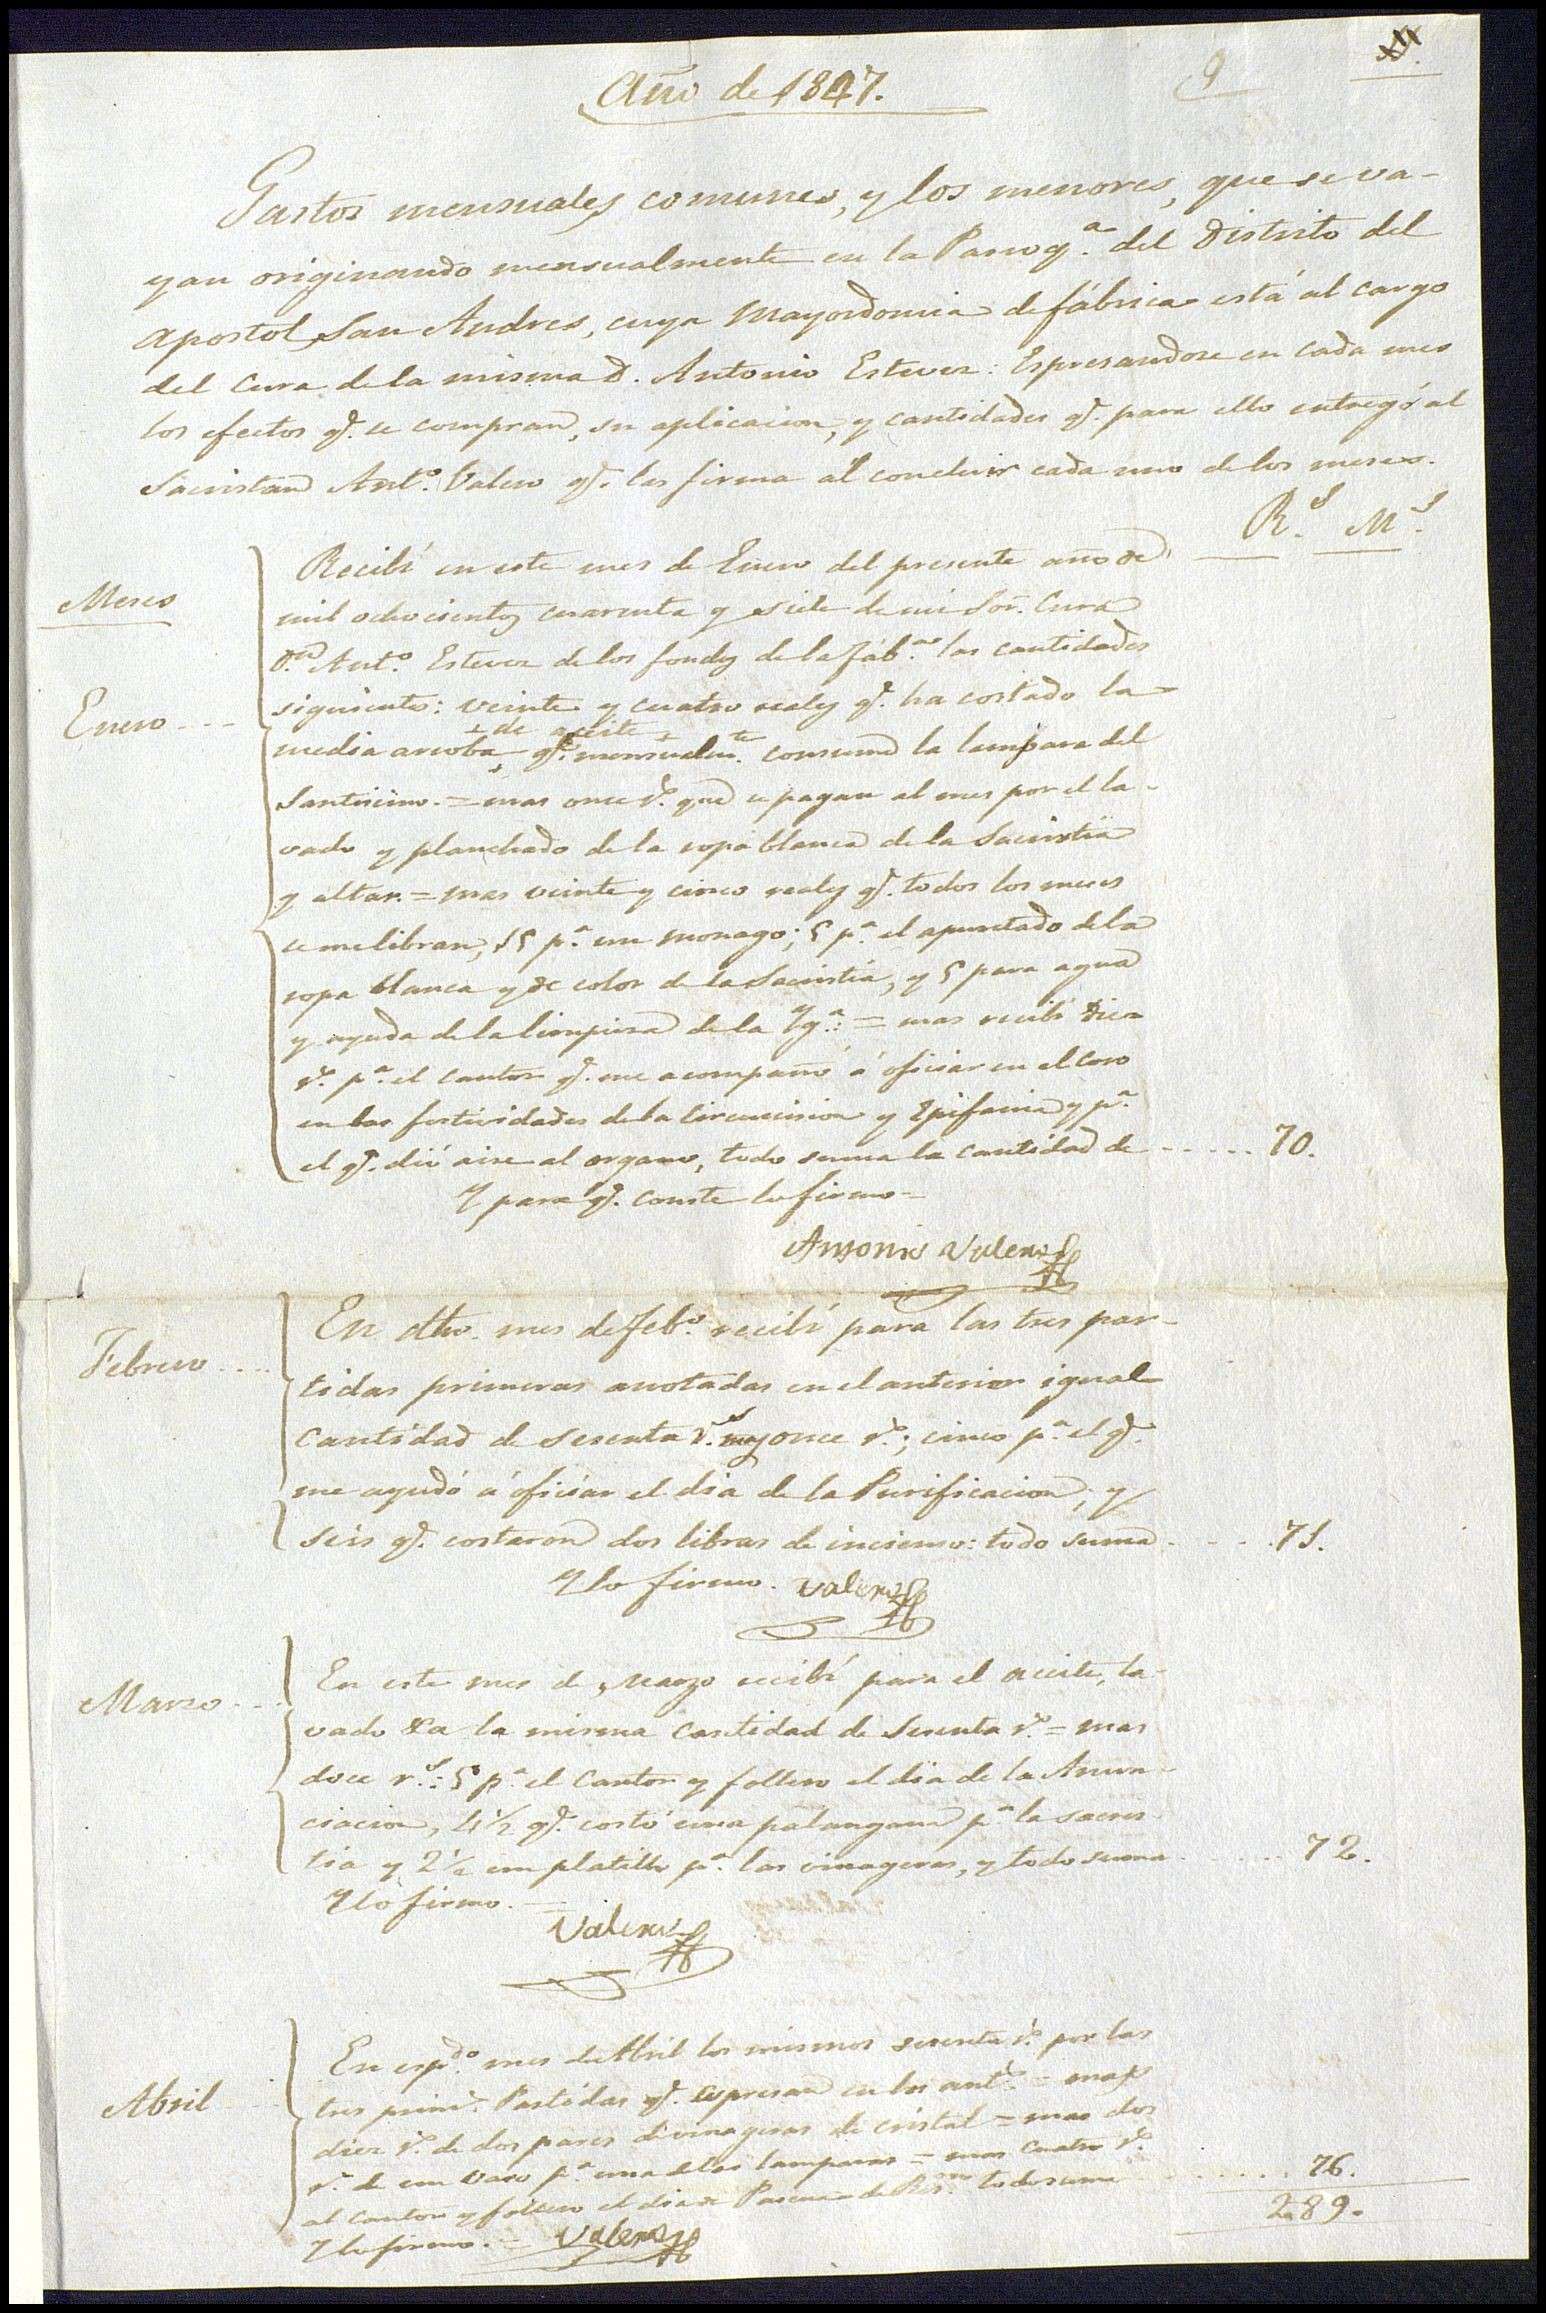 Año de 1847.
9
Gastos mensuales comunes, y los menores, que se va-
yan originando mensualmente en la Parroq.ª del Distrito del
Apostol San Andres, cuya Mayordomia de fábrica está al cargo
del Cura de la misma D. Antonio Estevez: Espresandose en cada mes
los efectos q.e se compran, su aplicacion, y cantidades q.e para ello entregó al
Sacristan Ant.o Valero q.e las firma al concluir cada uno de los meses.
R.s M.s
Meses
Enero
Recibí en este mes de Enero del presente año de
mil ochocientos cuarenta y siete de mi Sor. Cura
D.n Ant.o Estevez de los fondos de la fáb.ca las cantidades
siguientes: veinte y cuatro reales q.e ha costado la
+ de aceite +
media arroba q.e mensualm.te consume la lampara del
Santisimo. = mas once r.s que se pagan al mes por el la-
vado y planchado de la ropa blanca de la Sacristia
y altar. = mas veinte y cinco reales q.e todos los meses
se me libran, 15 p.ª un monago; 5 p.ª el apuntado de la
ropa blanca y de color de la Sacristía, y 5 para agua
y ayuda de la limpieza de la Yg.ª: = mas recibí diez
r.s p.ª el cantor q.e me acompañó á oficiar en el coro
en las festividades de la Circuncision y Epifania y p.ª
el q.e dió aire al organo, todo suma la cantidad de ...... 70.
Y para q.e conste lo firmo =
Antonio Valero
Febrero ....
En dho. mes de Feb.o recibí para las tres par-
tidas primeras anotadas en el anterior igual
cantidad de sesenta r.s y once r.s; cinco p.ª el q.e
me ayudó á oficiar el dia de la Purificacion, y
seis q.e costaron dos libras de incienso: todo suma .... 71.
Y lo firmo. Valero
Marzo ...
En este mes de Marzo recibí para el aceite, la-
vado &a la misma cantidad de sesenta r.s = mas
doce r.s: 5 p.ª el Cantor y follero el dia de la Anun-
ciacion, 4½ q.e costó una palangana p.ª la sacris-
tia y 2½ un platillo p.ª las vinageras, y todo suma ...... 72.
Y lo firmo. =
Valero
Abril ...
En esp.do mes de Abril los mismos sesenta r.s por las
tres prim.s Partidas q.e espresan en los ant.s = mas
diez r.s de dos pares de vinageras de cristal = mas dos
r.s de un vaso p.ª una de las lamparas = mas cuatro r.s
al cantor y follero el dia de Pascua de Res.on todo suma ...... 76.
Y lo firmo. = Valero
289.